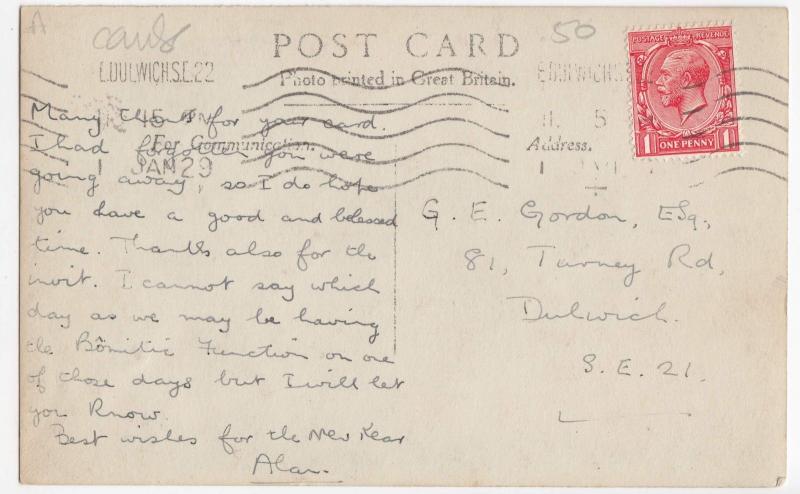 A
cards
50
POST CARD
Photo printed in Great Britain.
E.DULWICH.S.E.22
1 JAN 29
For Communication.
Address.
E.DULWICH.S
POSTAGE REVENUE
1 ONE PENNY 1
Many thanks for your card.
I had forgotten you were
going away, so I do hope
you have a good and blessed
time. Thanks also for the
invit. I cannot say which
day as we may be having
the Function on one
of those days but I will let
you know.
Best wishes for the New Year
Alan.
G. E. Gordon, Esq.,
81, Turney Rd,
Dulwich.
S.E. 21.